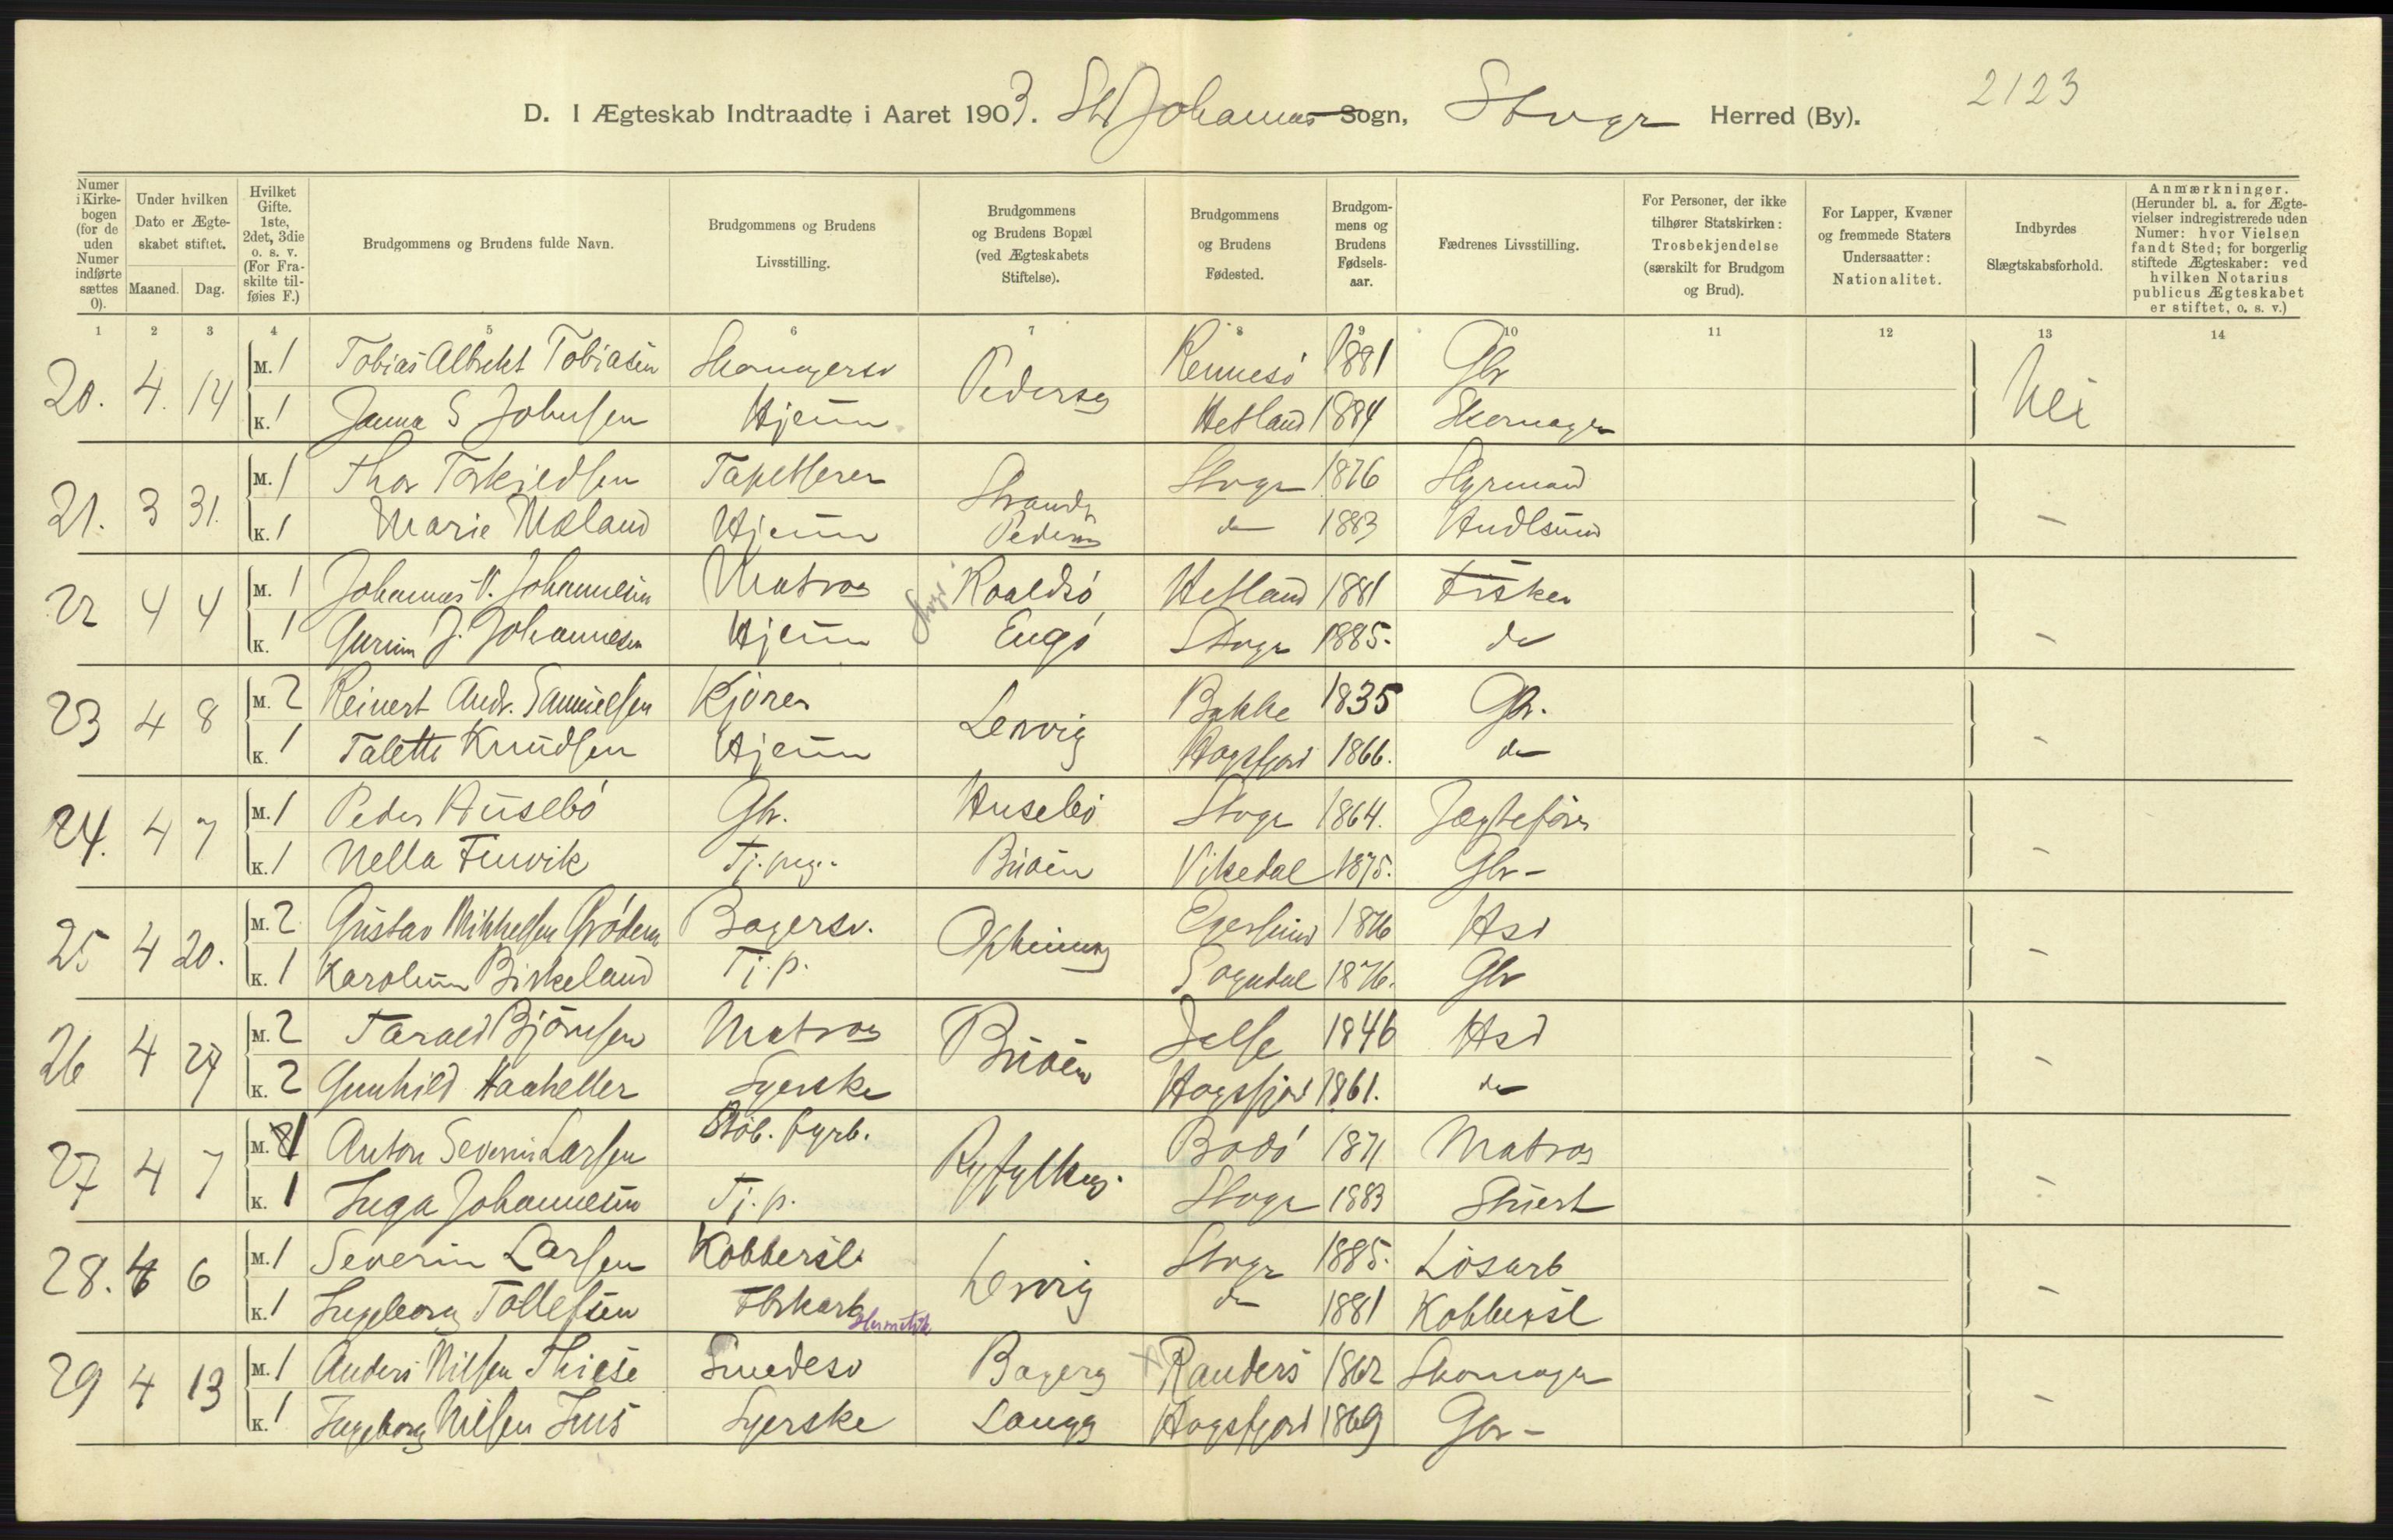 2123
D. I Ægteskab Indtraadte i Aaret 1903. St Johannes Sogn, Stvgr Herred (By).
Numer i Kirkebogen (for de uden Numer indførte sættes 0).
Under hvilken Dato er Ægteskabet stiftet.
Maaned. Dag.
Hvilket Gifte. 1ste, 2det, 3die o. s. v. (For Fraskilte tilføies F.)
Brudgommens og Brudens fulde Navn.
Brudgommens og Brudens Livsstilling.
Brudgommens og Brudens Bopæl (ved Ægteskabets Stiftelse).
Brudgommens og Brudens Fødested.
Brudgommens og Brudens Fødselsaar.
Fædrenes Livsstilling.
For Personer, der ikke tilhører Statskirken: Trosbekjendelse (særskilt for Brudgom og Brud).
For Lapper, Kvæner og fremmede Staters Undersaatter: Nationalitet.
Indbyrdes Slægtskabsforhold.
Anmærkninger. (Herunder bl. a. for Ægtevielser indregistrerede uden Numer: hvor Vielsen fandt Sted; for borgerlig stiftede Ægteskaber: ved hvilken Notarius publicus Ægteskabet er stiftet, o. s. v.)
1 2 3 4 5 6 7 8 9 10 11 12 13 14
20. 4. 14 M. 1 Tobias Albrekt Tobiasen Skomagersv Pedersg Rennesö 1881 Gbr Nei
K. 1 Janna S Johnsen Hjem Hetland 1884 Skomager
21. 3 31. M. 1 Thor Torkildsen Tapetserer Strandg Stvgr 1876 Styrmand –
K. 1 Marie Mæland Hjem Pedersg do 1883
22 4 4 M. 1 Johannes V. Johannesen Matros Stvgr Roaldsö Hetland 1881 Fisker –
K. 1 Gurine J. Johannesen Hjem Engö Stvgr 1885. do
23 4 8 M. 2 Reinert Andr. Samuelsen Kjörer Lervig Bakke 1835 Gbr. –
K. 1 Talette Knudsen Hjem Høgsfjord 1866. do
24. 4 7 M. 1 Peder Husebö Gbr. Husebö Stvgr 1864. Jægtefører –
K. 1 Nella Tj.pige. Buöen Vikedal 1875. Gbr –
25 4 20. M. 2 Gustav Mikkelsen Grödem Bagersv. Opheimsg Egersund 1876 Hsd –
K. 1 Karoline Birkeland Tj.p. Sogndal 1876. Gbr
26 4 27 M. 2 Tarald Björnsen Matros Buöen Jelse 1846 Hsd –
K. 2 Gunhild Haaheller Syerske Høgsfjord 1861. do
27 4 7 M. 1 Anton Severin Larsen Støb. fyrb. Ryfylkeg. Bodö 1871 Matros –
K. 1 Inga Johannesen Tj.p. Stvgr 1883 Stuert
28. 4 6 M. 1 Severin Larsen Kobbersl. Lervig Stvgr 1885. Løsarb –
K. 1 Ingeborg Tollefsen Fbrkarb Hermetik do 1881 Kobbersl
29 4 13 M. 1 Anders Nilsen Thiese Smedesv Bagerg Randers 1862 Skomager –
K. 1 Ingeborg Nilsen Ims Syerske Langg Høgsfjord 1869 Gbr –